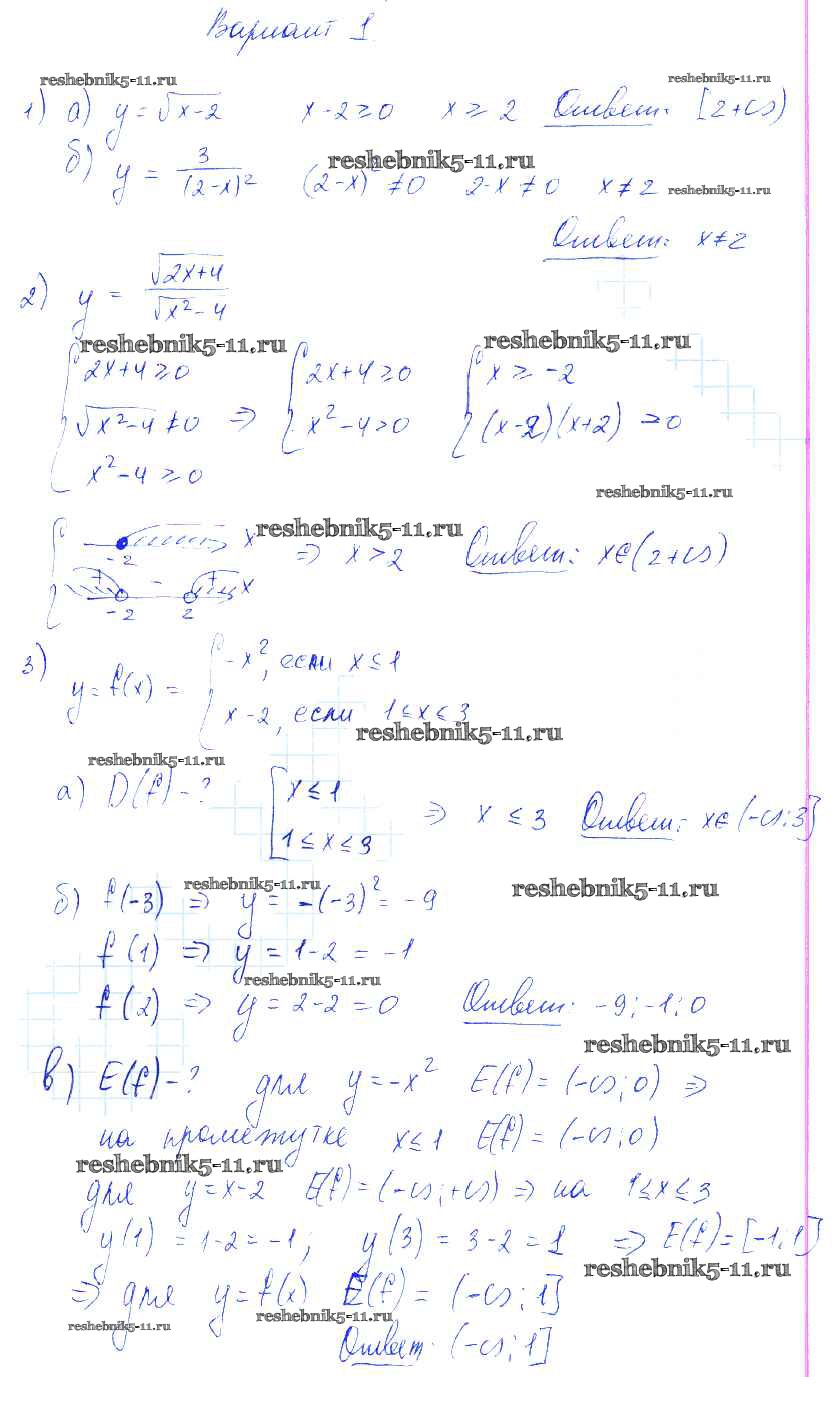 Вариант 1
reshebnik5-11.ru reshebnik5-11.ru
1) а) y = √x-2 x-2≥0 x ≥ 2 Ответ: [2+∞)
б) y = 3/(2-x)² (2-x)² ≠0 2-x ≠0 x≠2
reshebnik5-11.ru reshebnik5-11.ru
Ответ: x≠2
2) y = √2x+4 / √x²-4
reshebnik5-11.ru reshebnik5-11.ru
{ 2x+4≥0 { 2x+4≥0 { x ≥ -2
√x²-4 ≠0 ⇒ x²-4>0 (x-2)(x+2) >0
x²-4≥0
reshebnik5-11.ru
reshebnik5-11.ru
-2 x ⇒ x>2 Ответ: x∈(2+∞)
+ - + x
-2 2
3) y=f(x) = { -x², если x≤1
x-2, если 1≤x≤3
reshebnik5-11.ru
reshebnik5-11.ru
а) D(f)-? [ x≤1
1≤x≤3 ⇒ x ≤ 3 Ответ: x∈(-∞;3]
reshebnik5-11.ru reshebnik5-11.ru
б) f(-3) ⇒ y = -(-3)² = -9
f(1) ⇒ y = 1-2 = -1
reshebnik5-11.ru
f(2) ⇒ y = 2-2 = 0 Ответ: -9; -1; 0
reshebnik5-11.ru
в) E(f)-? для y=-x² E(f) = (-∞;0) ⇒
на промежутке x≤1 E(f) = (-∞;0)
reshebnik5-11.ru
для y=x-2 E(f) = (-∞;+∞) ⇒ на 1≤x≤3
y(1) = 1-2 = -1; y(3) = 3-2 = 1 ⇒ E(f) = [-1;1]
reshebnik5-11.ru
⇒ для y=f(x) E(f) = (-∞;1]
reshebnik5-11.ru
reshebnik5-11.ru
Ответ: (-∞;1]